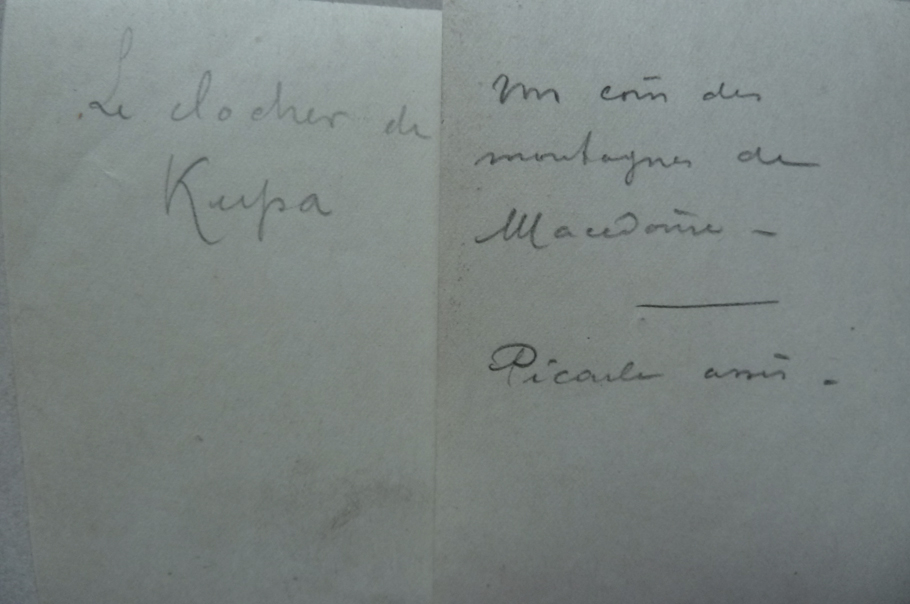 Le clocher de
Kupa
Un coin des
montagnes de
Macedoine -
assis -